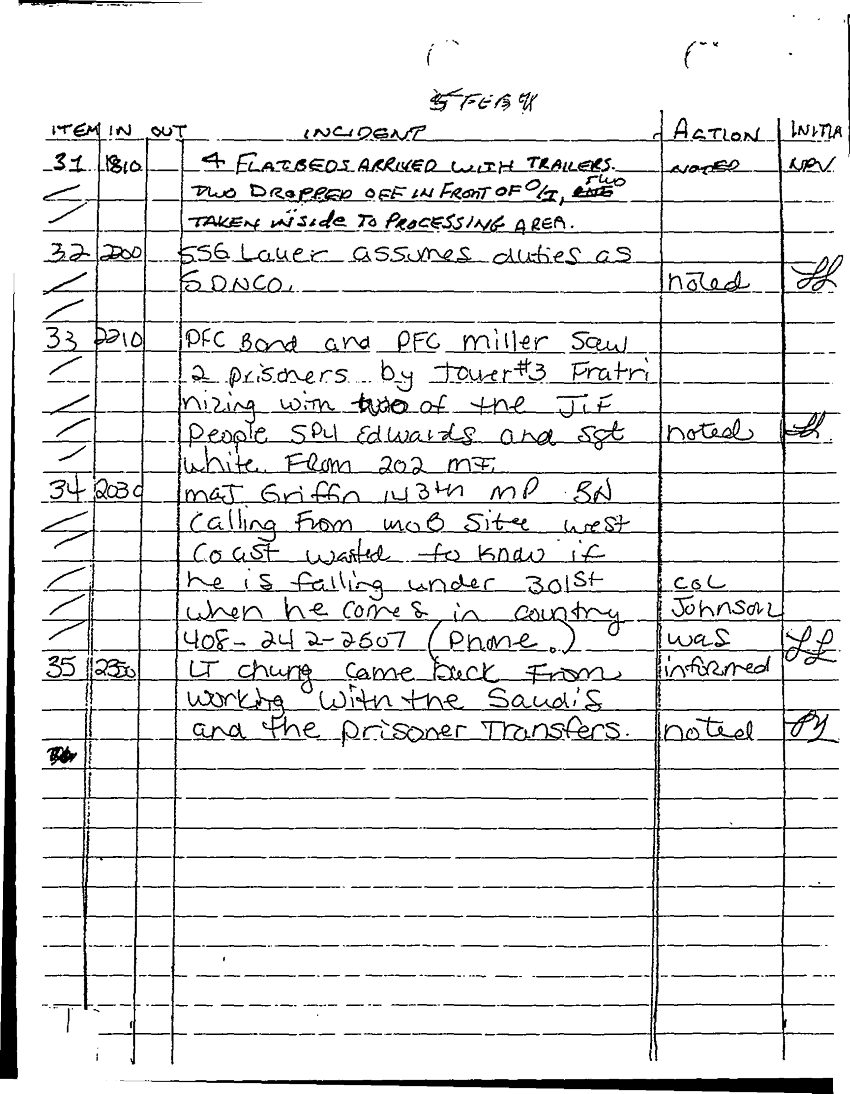 5 FEB 91
ITEM IN OUT INCIDENT ACTION INITIA
31 1810 4 FLATBEDS ARRIVED WITH TRAILERS. NOTED NPV
TWO DROPPED OFF IN FRONT OF O/I, TWO
TAKEN INSIDE TO PROCESSING AREA.
32 2200 SSG Lauer assumes duties as
SDNCO. noted LL
33 2210 PFC Bond and PFC Miller Saw
2 prisoners by Tower #3 Fratri
nizing with two of the JIF
People SP4 Edwards and Sgt noted LL
White From 202 MI.
34 2030 MAJ Griffin 143th MP BN
Calling From MOB Sitee West
Coast wanted to know if
he is falling under 301st COL
when he comes in country Johnson
408-242-2607 (Phone.) was LL
35 2350 LT chung came back From informed
working with the Saudi's
and the prisoner Transfers. noted